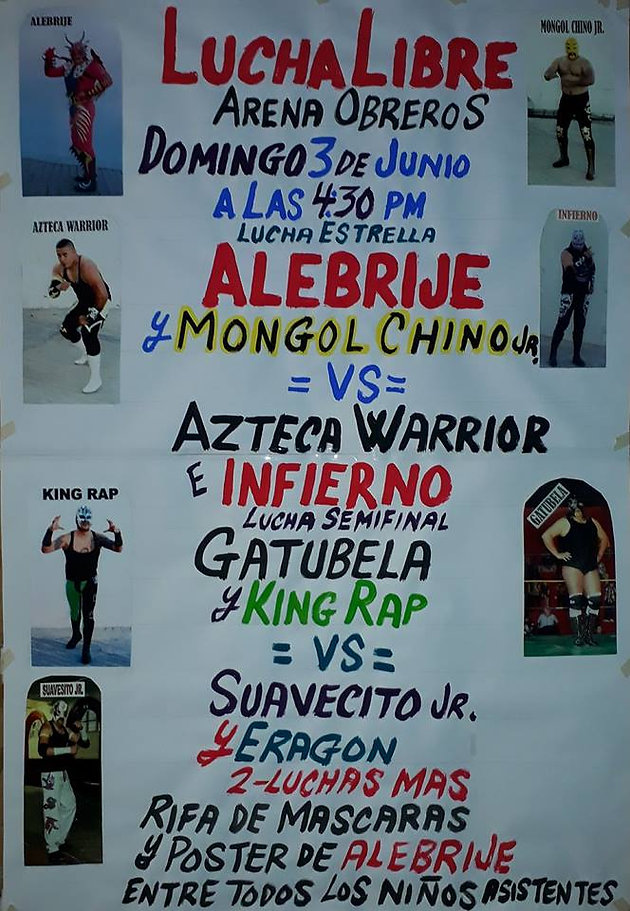 ALEBRIJE
MONGOL CHINO JR.
LUCHA LIBRE
ARENA OBREROS
DOMINGO 3 DE JUNIO
A LAS 4:30 PM
LUCHA ESTRELLA
AZTECA WARRIOR
INFIERNO
ALEBRIJE
Y MONGOL CHINO JR.
= VS =
AZTECA WARRIOR
E INFIERNO
KING RAP
LUCHA SEMIFINAL
GATUBELA
GATUBELA
Y KING RAP
= VS =
SUAVESITO JR.
SUAVECITO JR.
Y ERAGON
2-LUCHAS MAS
RIFA DE MASCARAS
Y POSTER DE ALEBRIJE
ENTRE TODOS LOS NIÑOS ASISTENTES